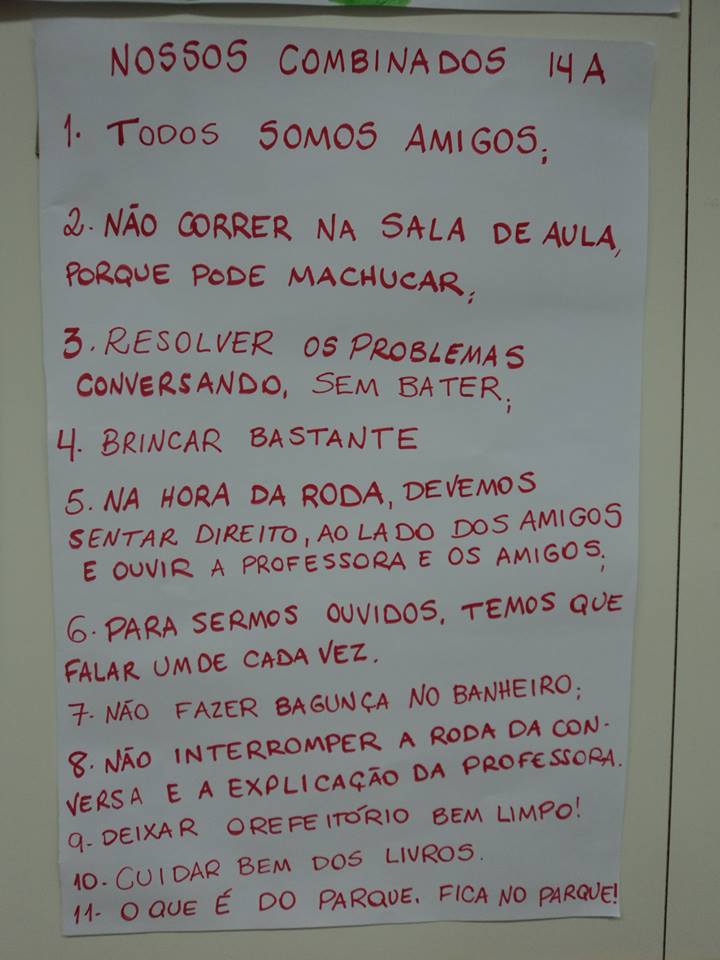 NOSSOS COMBINADOS 14 A
1. TODOS SOMOS AMIGOS;
2. NÃO CORRER NA SALA DE AULA,
PORQUE PODE MACHUCAR;
3. RESOLVER OS PROBLEMAS
CONVERSANDO, SEM BATER;
4. BRINCAR BASTANTE
5. NA HORA DA RODA, DEVEMOS
SENTAR DIREITO, AO LADO DOS AMIGOS
E OUVIR A PROFESSORA E OS AMIGOS;
6. PARA SERMOS OUVIDOS, TEMOS QUE
FALAR UM DE CADA VEZ.
7- NÃO FAZER BAGUNÇA NO BANHEIRO;
8. NÃO INTERROMPER A RODA DA CON-
VERSA E A EXPLICAÇÃO DA PROFESSORA.
9- DEIXAR O REFEITÓRIO BEM LIMPO!
10- CUIDAR BEM DOS LIVROS.
11- O QUE É DO PARQUE. FICA NO PARQUE!